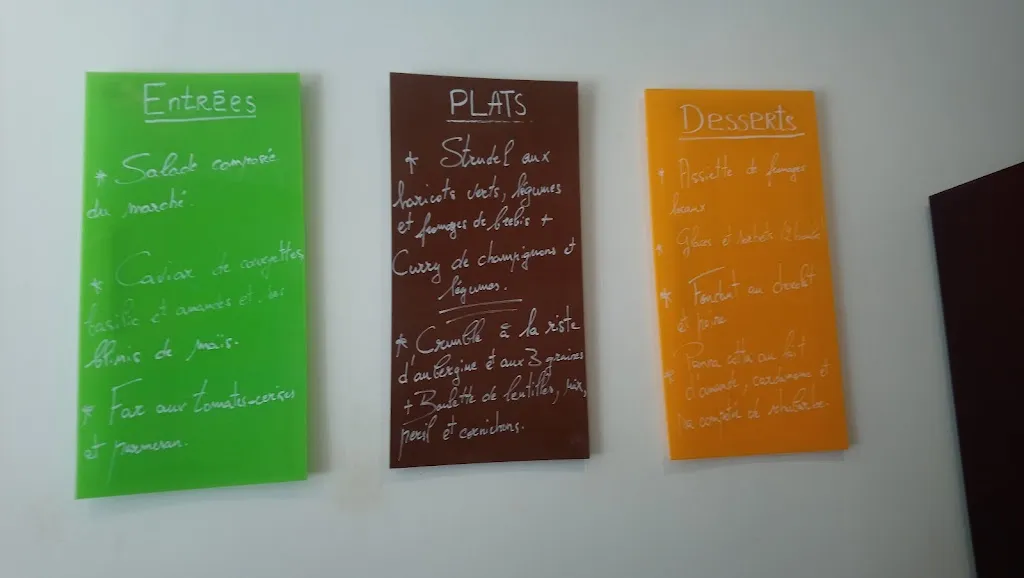 Entrées
* Salade composée
du marché.
* Caviar de courgettes,
basilic et amandes et ses
blinis de maïs.
* Far aux tomates-cerises
et parmesan.
PLATS
* Strudel aux
haricots verts, légumes
et fromages de brebis +
Curry de champignons et
légumes.
* Crumble à la riste
d'aubergine et aux 3 graines
+ Boulette de lentilles, noix,
persil et cornichons.
Desserts
* Assiette de fromages
locaux
* Glaces et sorbets
* Fondant au chocolat
et poire
* Panna cotta au lait
d'amande, cardamome et
sa compotée de rhubarbe.